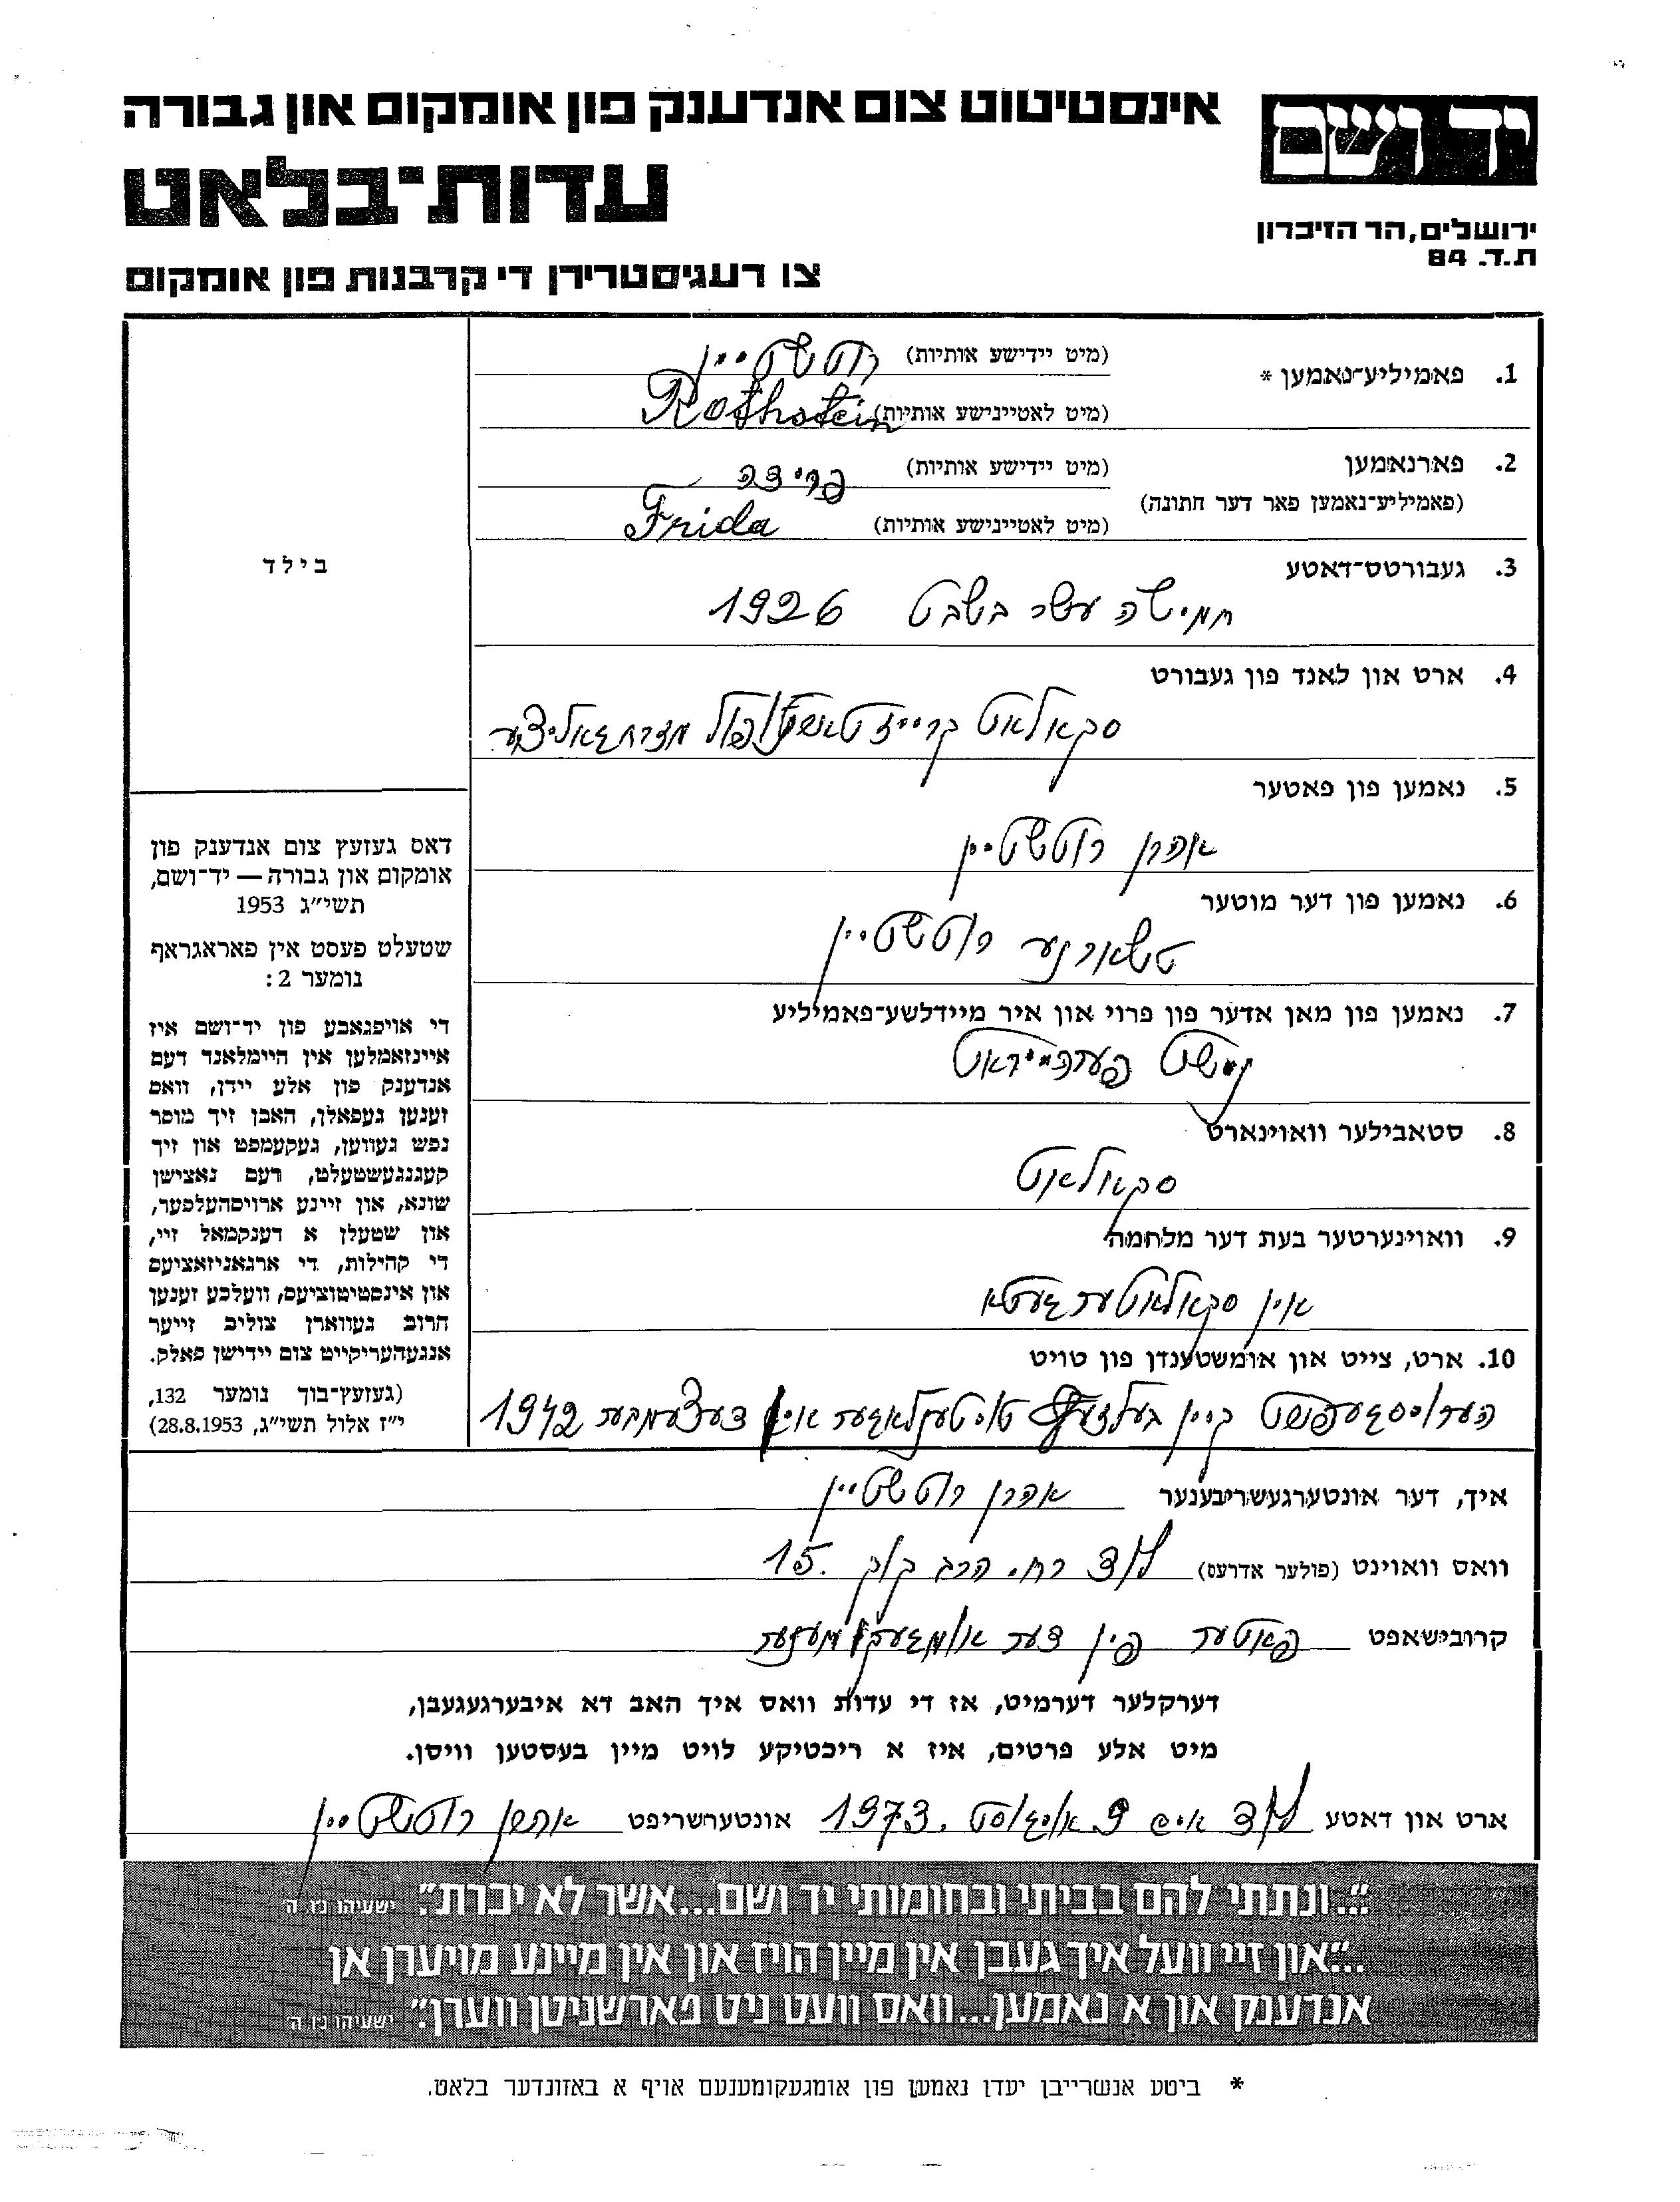 אינסטיטוט צום אנדענק פון אומקום און גבורה
יד ושם
עדות־בלאט
ירושלים, הר הזיכרון
ת.ד. 84
צו רעגיסטרירן די קרבנות פון אומקום
1. פאמיליע־נאמען *
(מיט יידישע אותיות) רוטשטיין
(מיט לאטיינישע אותיות) Rothstein
2. פארנאמען
(פאמיליע־נאמען פאר דער חתונה)
(מיט יידישע אותיות) פרידה
(מיט לאטיינישע אותיות) Frida
בילד
3. געבורטס־דאטע
חמישה עשר בשבט 1926
4. ארט און לאנד פון געבורט
סקאלאט קרייז מזרח גאליציע
5. נאמען פון פאטער
אהרן רוטשטיין
6. נאמען פון דער מוטער
טשארנע רוטשטיין
7. נאמען פון מאן אדער פון פרוי און איר מיידלשע־פאמיליע
נישט פערהייראט
8. סטאבילער וואוינארט
סקאלאט
9. וואוינערטער בעת דער מלחמה
אין סקאלאטער געטא
10. ארט, צייט און אומשטענדן פון טויט
הערויסגעפשט קיין בעלזעץ טויטענלאגער אין דעצעמבער 1942
דאס געזעץ צום אנדענק פון
אומקום און גבורה — יד־ושם,
תשי״ג 1953
שטעלט פעסט אין פאראגראף
נומער 2:
די אויפגאבע פון יד־ושם איז
איינזאמלען אין היימלאנד דעם
אנדענק פון אלע יידן, וואס
זענען געפאלן, האבן זיך מוסר
נפש געווען, געקעמפט און זיך
קעגנגעשטעלט, דעם נאצישן
שונא, און זיינע ארויסהעלפער,
און שטעלן א דענקמאל זיי,
די קהילות, די ארגאניזאציעס
און אינסטיטוציעס, וועלכע זענען
חרוב געווארן צוליב זייער
אנגעהעריקייט צום יידישן פאלק.
(געזעץ־בוך נומער 132,
י״ז אלול תשי״ג, 28.8.1953)
איך, דער אונטערגעשריבענער אהרן רוטשטיין
וואס וואוינט (פולער אדרעס) לוד רח. הרב קוק 15.
קרובישאפט פאטער פין דער אומגעקומענער
דערקלער דערמיט, אז די עדות וואס איך האב דא איבערגעגעבן,
מיט אלע פרטים, איז א ריכטיקע לויט מיין בעסטען וויסן.
ארט און דאטע לוד אים 9 אויגוסט. 1973 אונטערשריפט אהרן רוטשטיין
״...ונתתי להם בביתי ובחומותי יד ושם...אשר לא יכרת״. ישעיהו נו ה
״...און זיי וועל איך געבן אין מיין הויז און אין מיינע מויערן אן
אנדענק און א נאמען...וואס וועט ניט פארשניטן ווערן״. ישעיהו נו ה
* ביטע אנשרייבן יעדן נאמען פון אומגעקומענעם אויף א באזונדער בלאט.